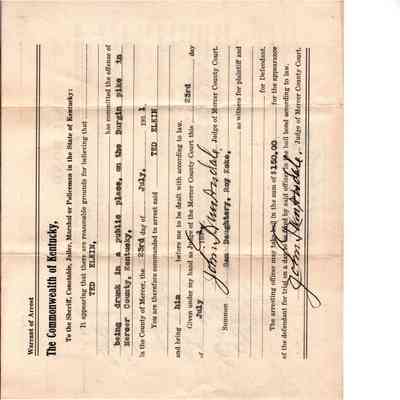 Warrant of Arrest
The Commonwealth of Kentucky,
To the Sheriff, Constable, Jailer, Marshal or Policeman in the State of Kentucky:
It appearing that there are reasonable grounds for believing that
TED ELKIN,
has committed the offense of
being drunk in a public place, on the Burgin pike in
Mercer County, Kentucky,
in the County of Mercer, the 23rd day of July, 1951
You are therefore commanded to arrest said TED ELKIN
and bring him before me to be dealt with according to law.
Given under my hand as Judge of the Mercer County Court this 23rd day
of July 195
Judge of Mercer County Court.
Summon Daughtery, Roy
as witness for plaintiff and
for Defendant.
The arresting officer may take bail in the sum of $150.00 for the appearance
of the defendant for trial on a day to be fixed by said officer in the bail bond according to law.
Judge of Mercer County Court.